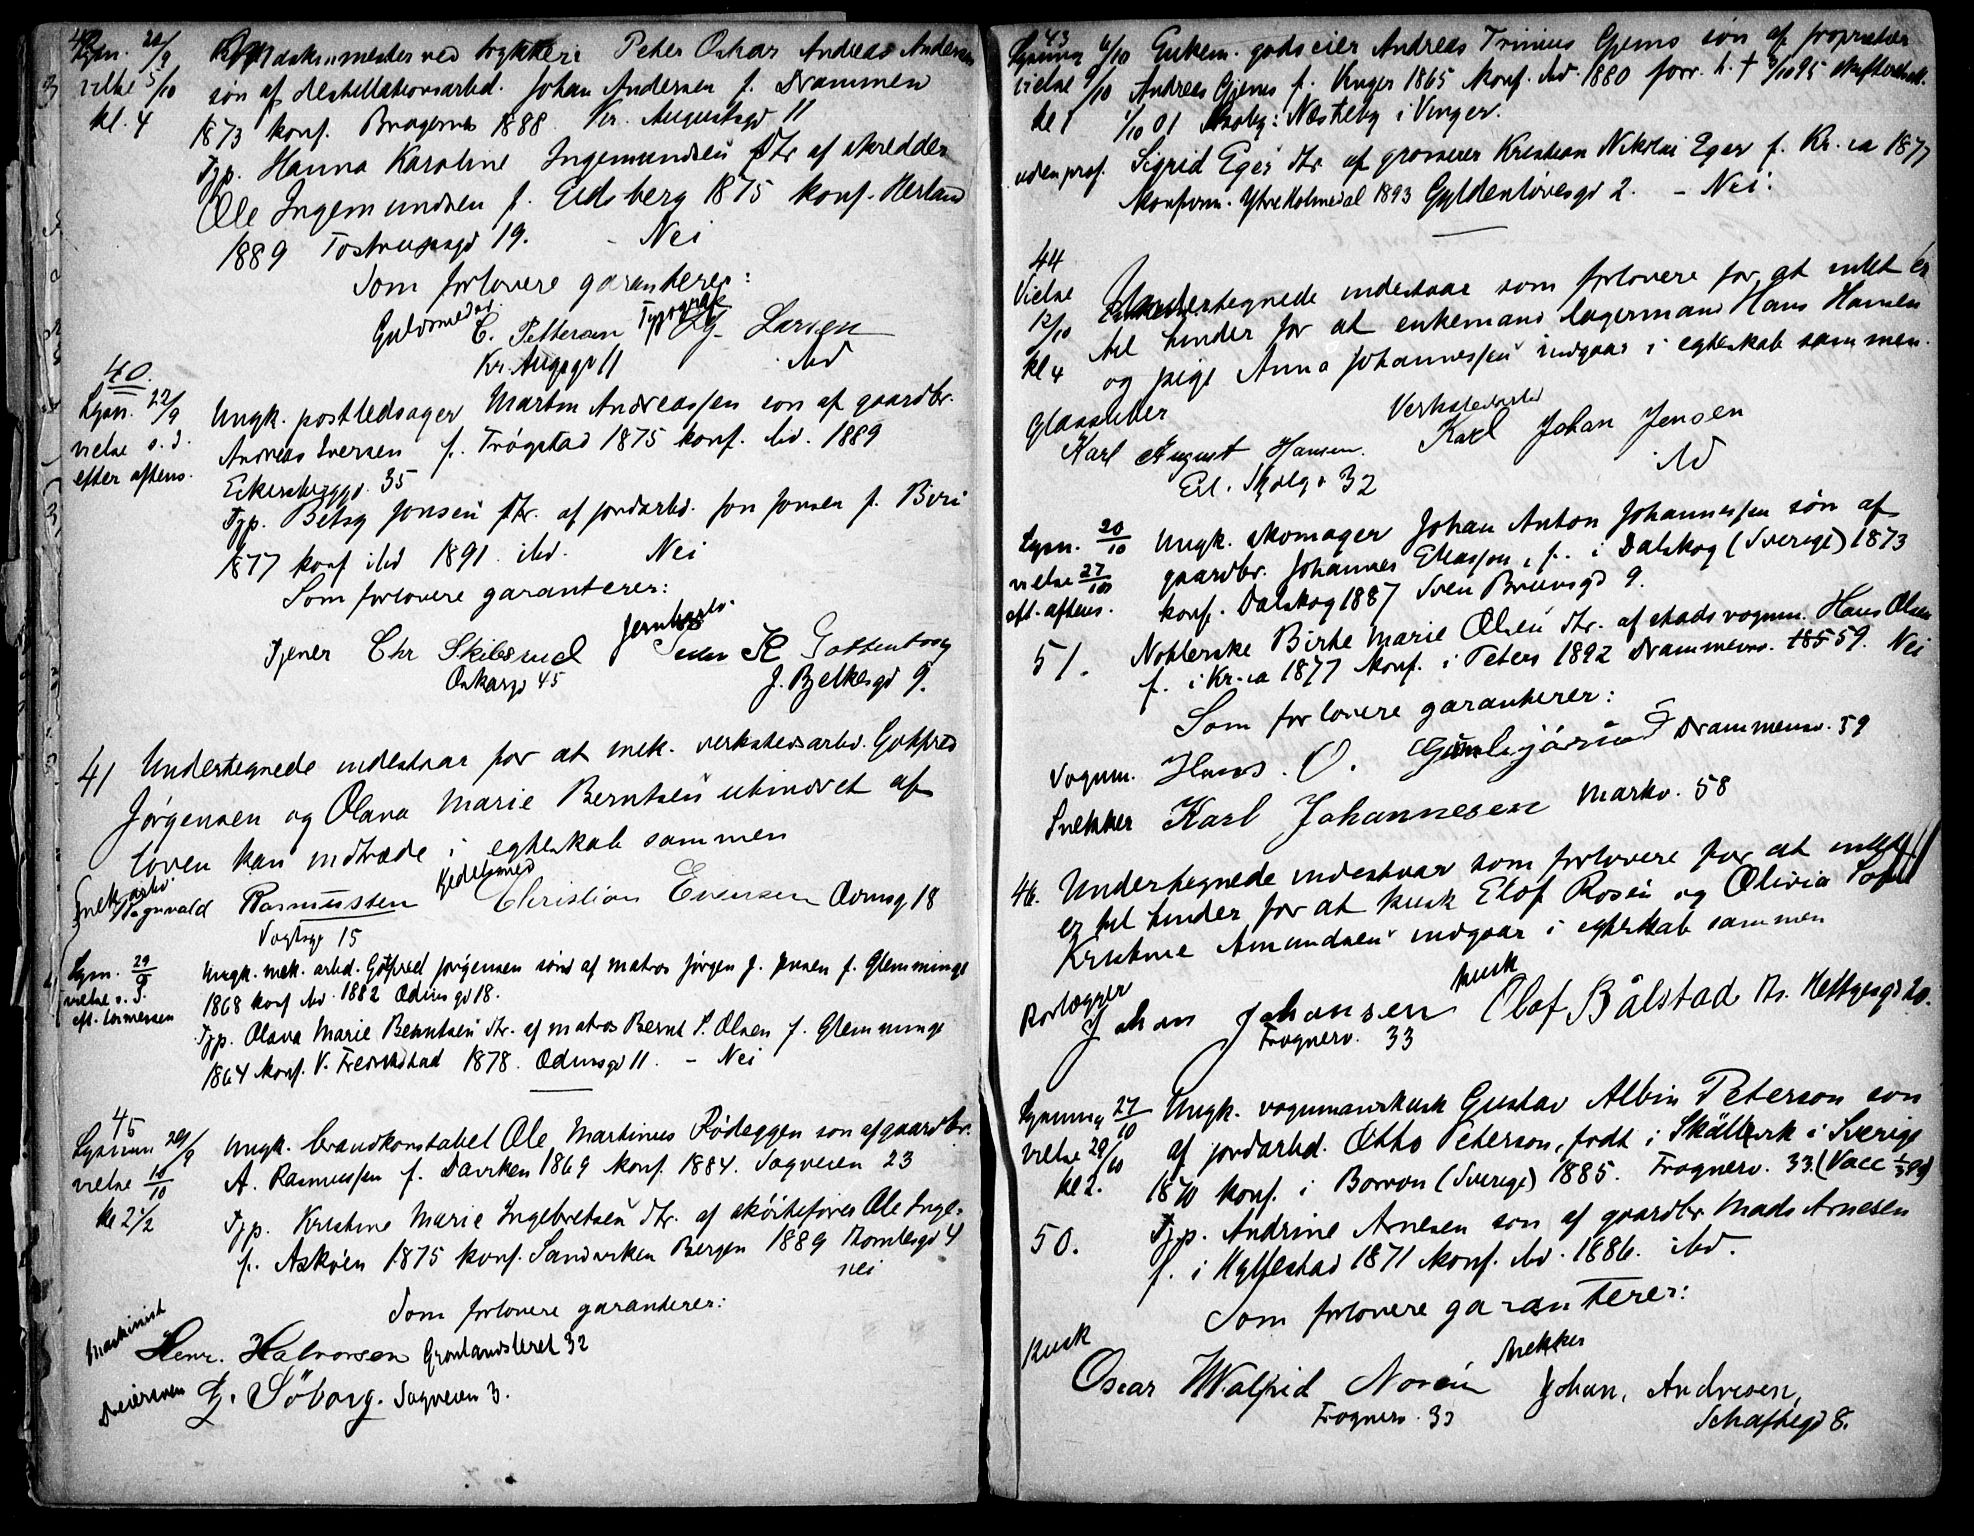 Lysn. 22/9 Maskinmester ved trykkeri Peter Oskar Andreas Andersen
vielse 5/10 søn af destillationsarbd. Johan Andersen f. Drammen
kl. 4 1873 konf. Bragernes 1888 Kr. Augustsgd 11
Typ. Hanna Karoline Ingemundsen dtr af skredder
Ole Ingemundsen f. Eidsberg 1875 konf. Herland
1889 Tostrupsgd 19. - Nei
Som forlovere garanterer:
Guldsmed C. Pettersen Typograf Larsen
Kr. Augsgd 11 ibd
40.
Lysn. 22/9 Ungk. postledsager Martin Andreassen søn af gaardbr.
vielse s. d. Andreas Iversen f. Trøgstad 1875 konf. ibd. 1889
efter aftens. Eckersberggd. 35
Typ. Betsy Jonsen dtr. af jordarbd. Jon Jonsen f. Biri
1877 konf ibd 1891 ibd. Nei
Som forlovere garanterer:
Tjener Chr Skibsrud Jernbarb. K Gottenborg
Oskarsgd 45 J. Bjelkesgd 9.
41 Undertegnede indestaar for at mek. verkstedsarbd. Gotfred
Jørgensen og Olava Marie Berntsen uhindret af
loven kan indtræde i egteskab sammen
mek. arbd. Ragnvald Rasmussen Kjedelsmed Christian Evensen Odinsg 18
Vogtsgd 15
Lysn. 29/9 Ungk. mek. arbd. Gotfred Jørgensen søn af matros Jørgen J. Jensen f. Glemminge
vielse s. d. 1868 konf ibd. 1882 Odinsgd 18.
eft. høimessen
Typ. Olava Marie Berntsen dtr. af matros Bernt S. Olsen f. Glemminge
1864 konf. V. Fredrikstad 1878. Odinsgd 11. - Nei
45
Lysning 29/9 Ungk. brandkonstabel Ole Martinus Rødeggen søn af gaardbr.
vielse 10/10 A. Rasmussen f. 1869 konf. 1884. Sagveien 23
kl 2 1/2 Typ. Kristine Marie Ingebretsen dtr. af skøitefører Ole Inge.
f. Askøen 1875 konf. Sandviken Bergen 1889 Tromtesgd 4
nei
Som forlovere garanterer:
Maskinist Henr. Halvorsen Grønlandsleret 32
Dreiersven Søborg. Sagveien 3.
43
Lysning 6/10 Enkem. godseier Andreas Trinius Gjems søn af proprietær
vielse 9/10 Andreas Gjems f. Vinger 1865 konf. ibd. 1880 forr. h. † 3/10 95 skifteattest
kl 1 1/10 01 Bolig: Næsteby i Vinger.
uden prof. Sigrid Eger dtr af grosserer Kristian Nikolai Eger f. Kr.ia 1877
konfirm. Ytre Holmedal 1893 Gyldenløvesgd 2. - Nei.
44
Vielse Undertegnede indestaar som forlovere for, at intet er
12/10 til hinder for at enkemand lagermand Hans Hansen
kl 4 og pige Anna Johannessen indgaar i egteskab sammen.
Glassliber Verkstedsarbd
Karl August Hansen. Karl Johan Jensen
Eil. Sgdg. 32 ibd
Lysn. 20/10 Ungk. skomager Johan Anton Johannessen søn af
vielse 27/10 gaardbr. Johannes Eliasson, f. i Dalskog (Sverige) 1873
eft. aftens. konf. Dalskog 1887 Sven Brunsgd 9.
51. Nohlerske Birthe Marie Olsen dtr. af stads vognm. Hans Olsen
f. i Kr.ia 1877 konf. i Peters 1892 Drammensv. 59. Nei
Som forlovere garanterer:
Vognm. Hans. O. Drammensv. 59
Snekker Karl Johannesen Markv. 58
46. Undertegnede indestaar som forlovere for at intet
er til hinder for at kusk Elof Rosén og Olivia Sofie
Kristine Amundsen indgaar i egteskab sammen
Rørlægger kusk
Johan Johansen Olof Bålstad Th. Heftyesgd 20.
Frognerv. 33
Lysning 27/10 Ungk. vognmandskusk Gustav Albin Peterson søn
vielse 29/10 af jordarbd. Otto Peterson, født i Skällerk i Sverige
kl 2. 1870 konf. i Borvon (Sverige) 1885. Frognerv. 33. (Vacc
50. Typ. Andrine Arnesen søn af gaardbr Mads Arnesen
f. i Hyllestad 1871 konf. ibd. 1886. ibd.
Som forlovere garanterer:
Kusk Snekker
Oscar Walfrid Norén Johan, Andresen,
Frognerv. 33 Schaftegd 8.